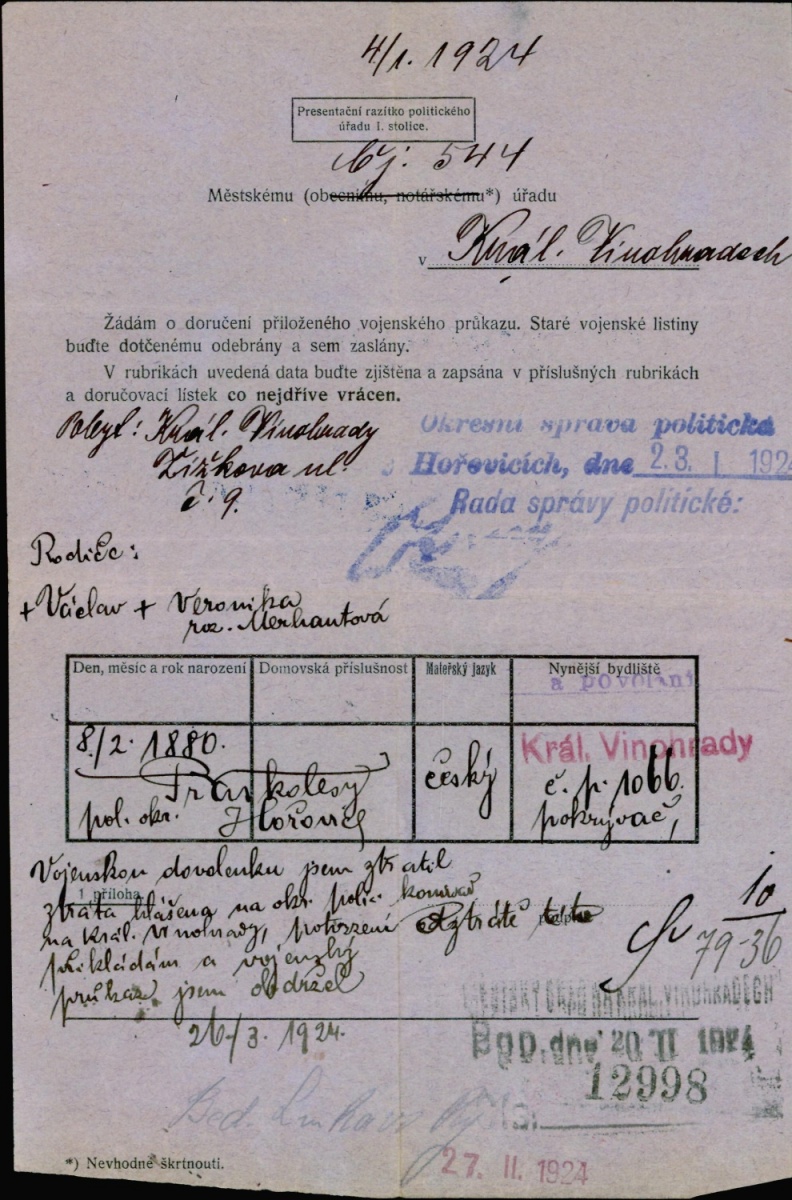 4/1. 1924
Presentační razítko politického
úřadu I. stolice.
čj: 544
Městskému (obecnímu, notářskému*) úřadu
v Král. Vinohradech
Žádám o doručení přiloženého vojenského průkazu. Staré vojenské listiny
buďte dotčenému odebrány a sem zaslány.
V rubrikách uvedená data buďte zjištěna a zapsána v příslušných rubrikách
a doručovací lístek co nejdříve vrácen.
Pobyt: Král. Vinohrady
Žižkova ul.
č. 9.
Okresní správa politická
Hořovicích, dne 2.3. I 1924
Rada správy politické:
Rodiče:
+ Václav + Veronika
roz. Merhautová
Den, měsíc a rok narození Domovská příslušnost Mateřský jazyk Nynější bydliště
a povolání
8./2. 1880.
pol. okr. Hořovice
český
Král. Vinohrady
č. p. 1066.
pokrývač,
Vojenskou dovolenku jsem ztratil
1 příloha.
ztráta hlášena na okr. polic. komisař
na Král. Vinohrady, potvrzení o ztrátě
přikládám a vojenský
průkaz jsem obdržel
26/3. 1924.
10
79-36
MĚSTSKÝ ÚŘAD NA KRÁL. VINOHRADECH
dne 20 II 1924
12998
*) Nevhodné škrtnouti.
27. II. 1924